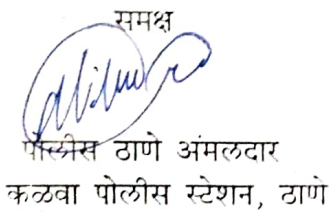 समक्ष
पोलीस ठाणे अंमलदार
कळवा पोलीस स्टेशन, ठाणे